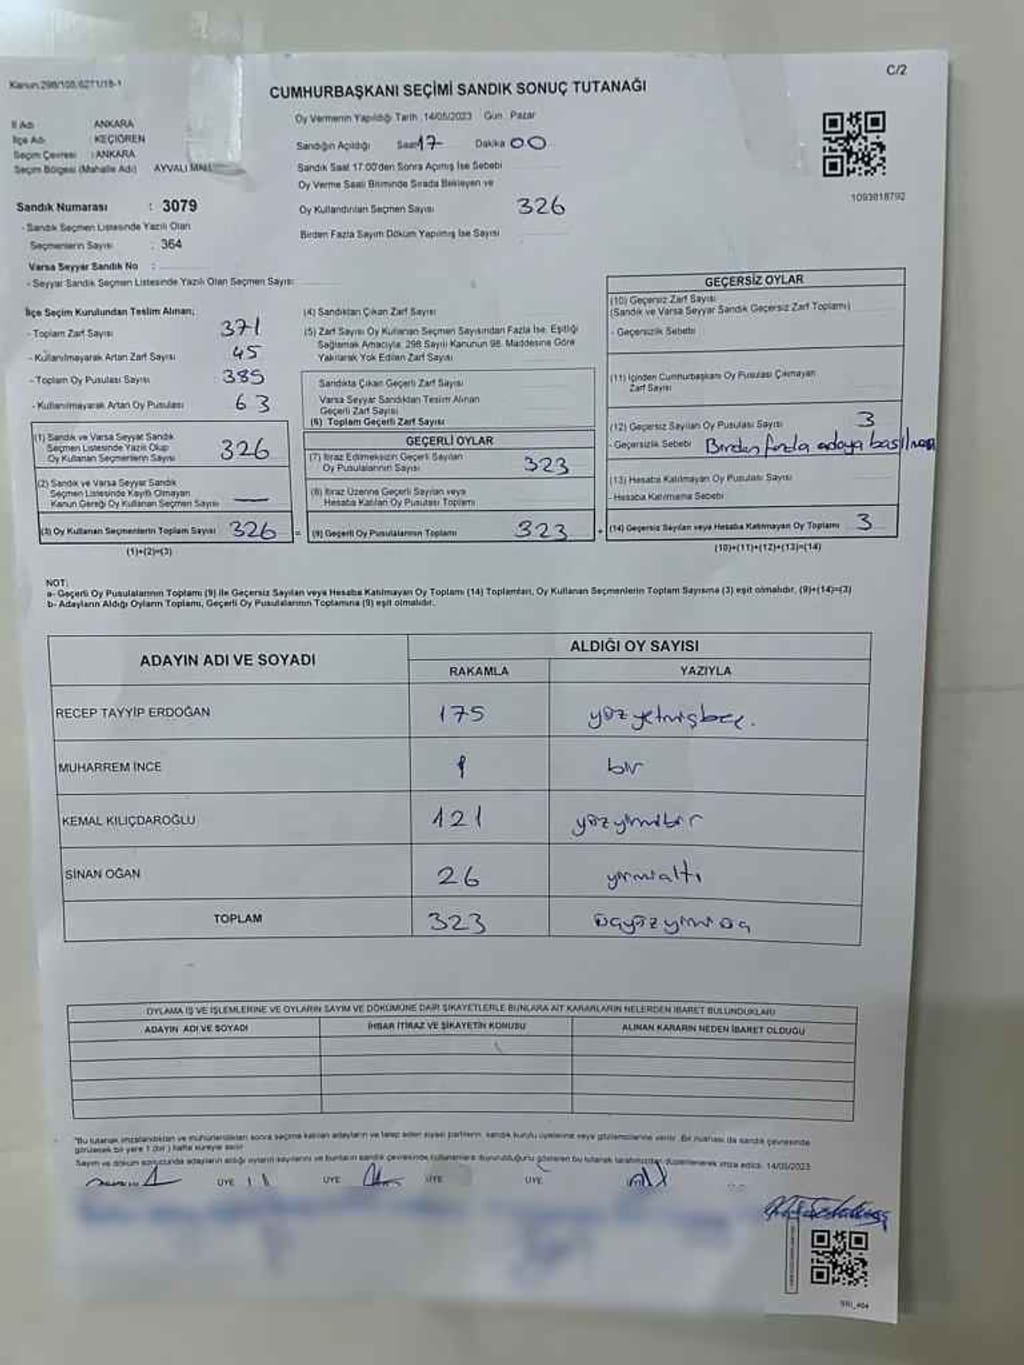 Kanun:298/105,6271/18-1
C/2
CUMHURBAŞKANI SEÇİMİ SANDIK SONUÇ TUTANAĞI
İl Adı ANKARA
İlçe Adı KEÇİÖREN
Seçim Çevresi : ANKARA
Seçim Bölgesi (Mahalle Adı) AYVALI MAH.
Oy Vermenin Yapıldığı Tarih : 14/05/2023 Gün : Pazar
Sandığın Açıldığı Saat 17 Dakika 00
Sandık Saat 17:00'den Sonra Açılmış İse Sebebi
Oy Verme Saati Bitiminde Sırada Bekleyen ve
Oy Kullandırılan Seçmen Sayısı 326
Birden Fazla Sayım Döküm Yapılmış İse Sayısı
1093818792
Sandık Numarası : 3079
- Sandık Seçmen Listesinde Yazılı Olan
Seçmenlerin Sayısı : 364
Varsa Seyyar Sandık No :
- Seyyar Sandık Seçmen Listesinde Yazılı Olan Seçmen Sayısı:
İlçe Seçim Kurulundan Teslim Alınan;
- Toplam Zarf Sayısı 371
- Kullanılmayarak Artan Zarf Sayısı 45
- Toplam Oy Pusulası Sayısı 385
- Kullanılmayarak Artan Oy Pusulası 63
(1) Sandık ve Varsa Seyyar Sandık
Seçmen Listesinde Yazılı Olup
Oy Kullanan Seçmenlerin Sayısı 326
(2) Sandık ve Varsa Seyyar Sandık
Seçmen Listesinde Kayıtlı Olmayan
Kanun Gereği Oy Kullanan Seçmen Sayısı —
(3) Oy Kullanan Seçmenlerin Toplam Sayısı 326
(1)+(2)=(3)
(4) Sandıktan Çıkan Zarf Sayısı
(5) Zarf Sayısı Oy Kullanan Seçmen Sayısından Fazla İse, Eşitliği
Sağlamak Amacıyla, 298 Sayılı Kanunun 98. Maddesine Göre
Yakılarak Yok Edilen Zarf Sayısı
Sandıkta Çıkan Geçerli Zarf Sayısı
Varsa Seyyar Sandıktan Teslim Alınan
Geçerli Zarf Sayısı
(6) Toplam Geçerli Zarf Sayısı
GEÇERLİ OYLAR
(7) İtiraz Edilmeksizin Geçerli Sayılan
Oy Pusulalarının Sayısı 323
(8) İtiraz Üzerine Geçerli Sayılan veya
Hesaba Katılan Oy Pusulası Toplamı
= (9) Geçerli Oy Pusulalarının Toplamı 323
GEÇERSİZ OYLAR
(10) Geçersiz Zarf Sayısı
(Sandık ve Varsa Seyyar Sandık Geçersiz Zarf Toplamı)
- Geçersizlik Sebebi
(11) İçinden Cumhurbaşkanı Oy Pusulası Çıkmayan
Zarf Sayısı
(12) Geçersiz Sayılan Oy Pusulası Sayısı 3
- Geçersizlik Sebebi Birden fazla adaya basılması
(13) Hesaba Katılmayan Oy Pusulası Sayısı
- Hesaba Katılmama Sebebi
+ (14) Geçersiz Sayılan veya Hesaba Katılmayan Oy Toplamı 3
(10)+(11)+(12)+(13)=(14)
NOT:
a- Geçerli Oy Pusulalarının Toplamı (9) ile Geçersiz Sayılan veya Hesaba Katılmayan Oy Toplamı (14) Toplamları, Oy Kullanan Seçmenlerin Toplam Sayısına (3) eşit olmalıdır. (9)+(14)=(3)
b- Adayların Aldığı Oyların Toplamı, Geçerli Oy Pusulalarının Toplamına (9) eşit olmalıdır.
ADAYIN ADI VE SOYADI
ALDIĞI OY SAYISI
RAKAMLA YAZIYLA
RECEP TAYYİP ERDOĞAN 175 yüzyetmişbeş.
MUHARREM İNCE 1 bir
KEMAL KILIÇDAROĞLU 121 yüzyirmibir
SİNAN OĞAN 26 yirmialtı
TOPLAM 323 üçyüzyirmiüç
OYLAMA İŞ VE İŞLEMLERİNE VE OYLARIN SAYIM VE DÖKÜMÜNE DAİR ŞİKAYETLERLE BUNLARA AİT KARARLARIN NELERDEN İBARET BULUNDUKLARI
ADAYIN ADI VE SOYADI İHBAR İTİRAZ VE ŞİKAYETİN KONUSU ALINAN KARARIN NEDEN İBARET OLDUĞU
*Bu tutanak imzalandıktan ve mühürlendikten sonra seçime katılan adayların ve talep eden siyasi partilerin, sandık kurulu üyelerine veya gözlemcilerine verilir. Bir nüshası da sandık çevresinde
görülecek bir yere 1 (bir) hafta süreyle asılır.
Sayım ve döküm sonucunda adayların aldığı oyların sayılarını ve bunların sandık çevresinde kullananlara duyurulduğunu gösteren bu tutanak tarafımızdan düzenlenerek imza edildi. 14/05/2023
ÜYE ÜYE ÜYE ÜYE